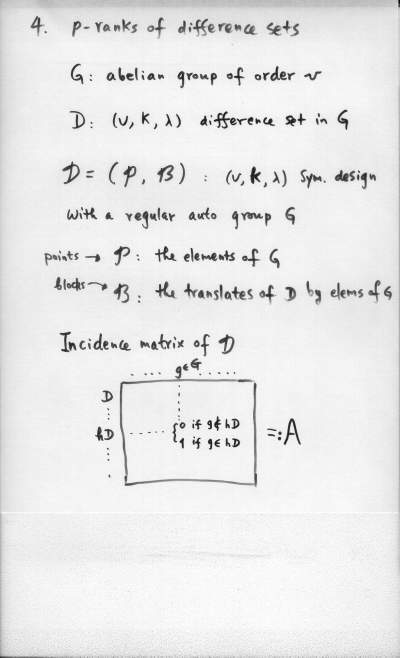 4. p-ranks of difference sets
G: abelian group of order v
D: (v, k, λ) difference set in G
𝒟 = (𝒫, ℬ) : (v, k, λ) Sym. design
with a regular auto group G
points → 𝒫: the elements of G
blocks → ℬ: the translates of D by elems of G
Incidence matrix of 𝒟
.... g∈G .....
D
⋮
hD ..... { 0 if g∉hD
1 if g∈hD
=: A
⋮